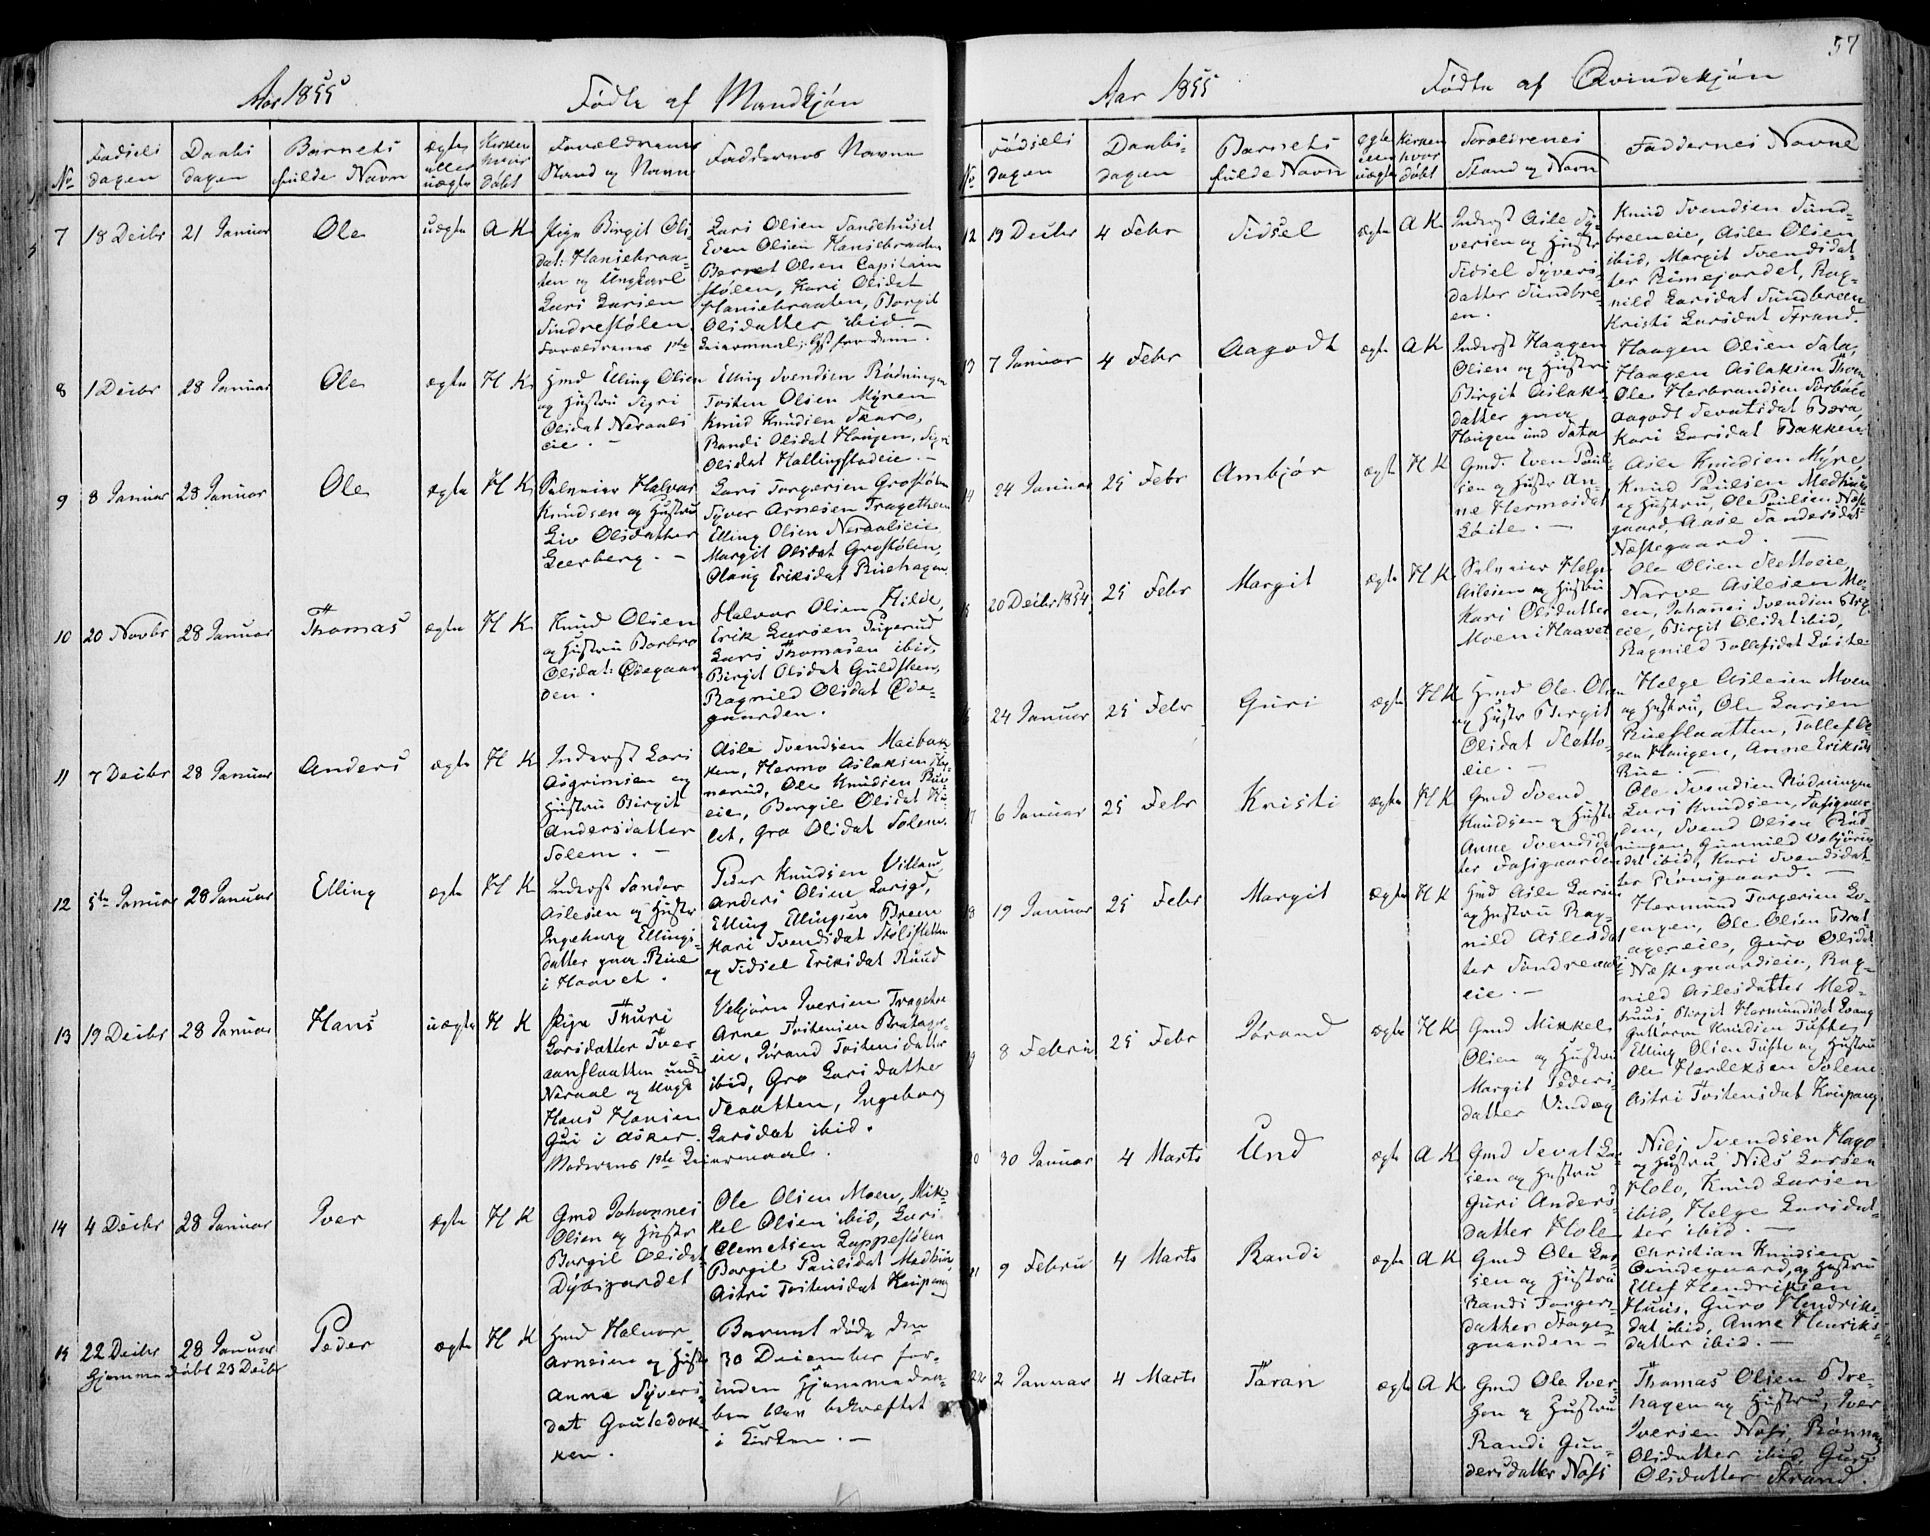 57
Aar 1855 Fødte af Mandkjøn
No
Fødsels dagen
Daabs dagen
Barnets fulde Navn
ægte eller uægte
Kirken hvor døbt
Forældrenes Stand og Navn
Faddernes Navne
7 18 Decbr 21 Januar Ole uægte A K
Pige Birgit Ols-
dat: Hansebraa-
ten og Ungkarl
Lars Larsen
Sindrestølen
Forældrenes 1ste Leiermaal
Lars Olsen Sandehuset
Even Olsen Hansebraaten
Olsen Capitain
stølen, Kari Olsdat
Hansebraaten, Borgit
Olsdatter ibid. —
8 1 Decbr 28 Januar Ole ægte H K
Gmd Elling Olsen
og Hustru Sigri
Olsdat Neraals
eie. —
Elling Svendsen Rødningen
Tosten Olsen Myren
Knud Knudsen Skaro,
Randi Olsdat Haugen, Sigri
Olsdat Hallingstadeie. —
9 8 Januar 28 Januar Ole ægte H K
Selveier Halvor
Knudsen og Hustru
Liv Olsdatter
Leerberg. —
Lars Torgersen Grostølen
Syver Arnesen Tragethon
Elling Olsen Neraalseie
Margit Olsdat Grostølen,
Olaug Eriksdat Ruehagen
10 20 Novbr 28 Januar Thomas ægte H K
Knud Olsen
og Hustru Barbro
Olsdat: Ødegaar
den.
Halvor Olsen Hilde,
Erik Larsen
Lars Thomasen ibid,
Birgit Olsdat Guldsteen,
Ragnild Olsdat Øde-
gaarden.
11 7 Decbr 28 Januar Anders ægte H K
Inderst Lars
Asgrimsen og
Hustru Birgit
Andersdatter
Solem. —
Asle Svendsen Maibak-
ken, Hermo Aslaksen
Ole Knudsen
eie, Borgil Olsdat
Gro Olsdat Solem.
12 5te Januar 28 Januar Elling ægte H K
Inderst Sander
Aslesen og Hustru
Ingeborg Ellings-
datter paa Rue
i Haavet.
Peder Knudsen Villand
Anders Olsen
Elling Ellingsen Breen
Kari Svendsdat
og Sidsel Eriksdat Ruud
13 19 Decbr 28 Januar Hans uægte H K
Pige Thuri
Larsdatter Tver-
aaslaatten under
Neraal og Ungk
Hans Hansen
Gui i Asker.
Moderens 1ste Leiermaal.
Vebjørn Iversen Tragethon
Arne Tostensen Bratager-
eie, Jørand Tostensdatter
ibid, Gro Larsdatter
Slaatten, Ingeborg
Larsdat ibid.
14 4 Decbr 28 Januar Iver ægte H K
Gmd Johannes
Olsen og Hustr
Borgil Olsdat
Dybsjordet
Ole Olsen Moen, Mik-
kel Olsen ibid, Lars
Clemetsen Lappestølen
Borgil Paulsdat Medhuus,
Astri Tostensdat Kaupang
15 22 Decbr 28 Januar Peder ægte H K
Hjemmedøbt 23 Decbr
Gmd Halvor
Arnesen og Hustr
Anne Syvers-
dat Gouledok-
ken.
Barnet døde den
30 December for-
inden Hjemmedaa-
ben blev bekræftet
i Kirken. —
Aar 1855 Fødte af Qvindekjøn
No
Fødsels dagen
Daabs- dagen
Barnets fulde Navn
ægte eller uægte
Kirken hvor døbt
Forældrenes Stand og Navn
Faddernes Navne
12 19 Decbr 4 Febr Sidsel ægte A K
Inderst Asle Sy-
versen og Hustr
Sidsel Syvers-
datter Sundbre-
en.
Knud Svendsen Sund-
breeneie, Asle Olsen
ibid, Margit Svendsdat-
ter Rimejordet, Rag-
nild Larsdat Sundbreen
Kristi Larsdat Strand.
13 7 Januar 4 Febr Aagodt ægte A K
Inderst Haagen
Olsen og Hustru
Birgit Aslaks
datter paa
Haugen und Sata
Haagen Olsen Sata,
Haagen Aslaksen
Ole Herbrandsen
Aagodt Sevatsdat Bæra,
Kari Larsdat Bakken
14 24 Januar 25 Febr Ambjør ægte H K
Gmd. Even Paul-
sen og Hustr An-
ne Hermosdat
Løite. —
Asle Knudsen Myre,
Knud Paulsen Medhuus
og Hustru, Ole Paulsen Næs-
gaard Aase Sandersdat
Næstegaard. —
15 20 Decbr 1854 25 Febr Margit ægte H K
Selveier Helge
Aslesen og Hustru
Kari Olsdatter
Moen i Haavet
Ole Olsen Slettoeie,
Narve Aslesen Mo-
en, Johannes Svendsen
eie, Birgit Olsdat ibid,
Ragnild Tollefsdat Løite
24 Januar 25 Febr Guri ægte H K
Gmd Ole Olsen
og Hustr Birgit
Olsdat Sletto-
eie. —
Helge Aslesen Moen
og Hustru, Ole Larsen
Rueslaatten, Tollef
Haugen, Anne Eriksdt
Rue. —
6 Januar 25 Febr Kristi ægte H K
Gmd Svend
Knudsen og Hustr
Anne Svendsdat
ter
Ole Svendsen Rødningen
Lars Knudsen,
den, Svend Olsen Rød
ningen, Gunnild Vebjørns
dat ibid, Kari Svendsdat
ter
18 19 Januar 25 Febr Margit ægte H K
Gmd Asle Larsen
og Hustru Rag-
nild Aslesdat
ter Sandreaals
eie. —
Hermund Torgersen
Ole Olsen Brat
agereie, Guro Olsdat
Næstegaardseie, Rag-
nild Aslesdatter Med-
huus, Birgit Hermundsdat
8 Februar 25 Febr Jørand ægte H K
Gmd Mikkel
Olsen og Hustru
Margit Peders-
datter Vindæg
Guttorm Knudsen Tufte,
Elling Olsen Tufte og Hustru
Ole Herleksen Solem.
Astri Tostensdat Kaupang
30 Januar 4 Marts Und ægte A K
Gmd Sevat Lar
sen og Hustru
Guri Anders
datter Hole
Nils Svendsen Hago
og Hustru, Nils Larsen
Holo, Knud Larsen
ibid, Helge Larsdat-
ter ibid. —
9 Februar 4 Marts Randi ægte A K
Gmd Ole Lar
sen og Hustru
Randi Torgers-
datter Hage-
gaarden —
Christian Knudsen
Qvindegaard, og Hustru
Ellef Hendriksen
Huus, Guro Hendriks-
dat ibid, Anne Henriks-
datter ibid. —
22 2 Januar 4 Marts Taran ægte A K
Gmd Ole Iver-
sen og Hustru
Randi Gun-
dersdatter Næss
Thomas Olsen Bre-
hagen og Hustru, Iver
Iversen Næss, Rønnaug
Olsdatter ibid, Guri
Olsdatter Strand.